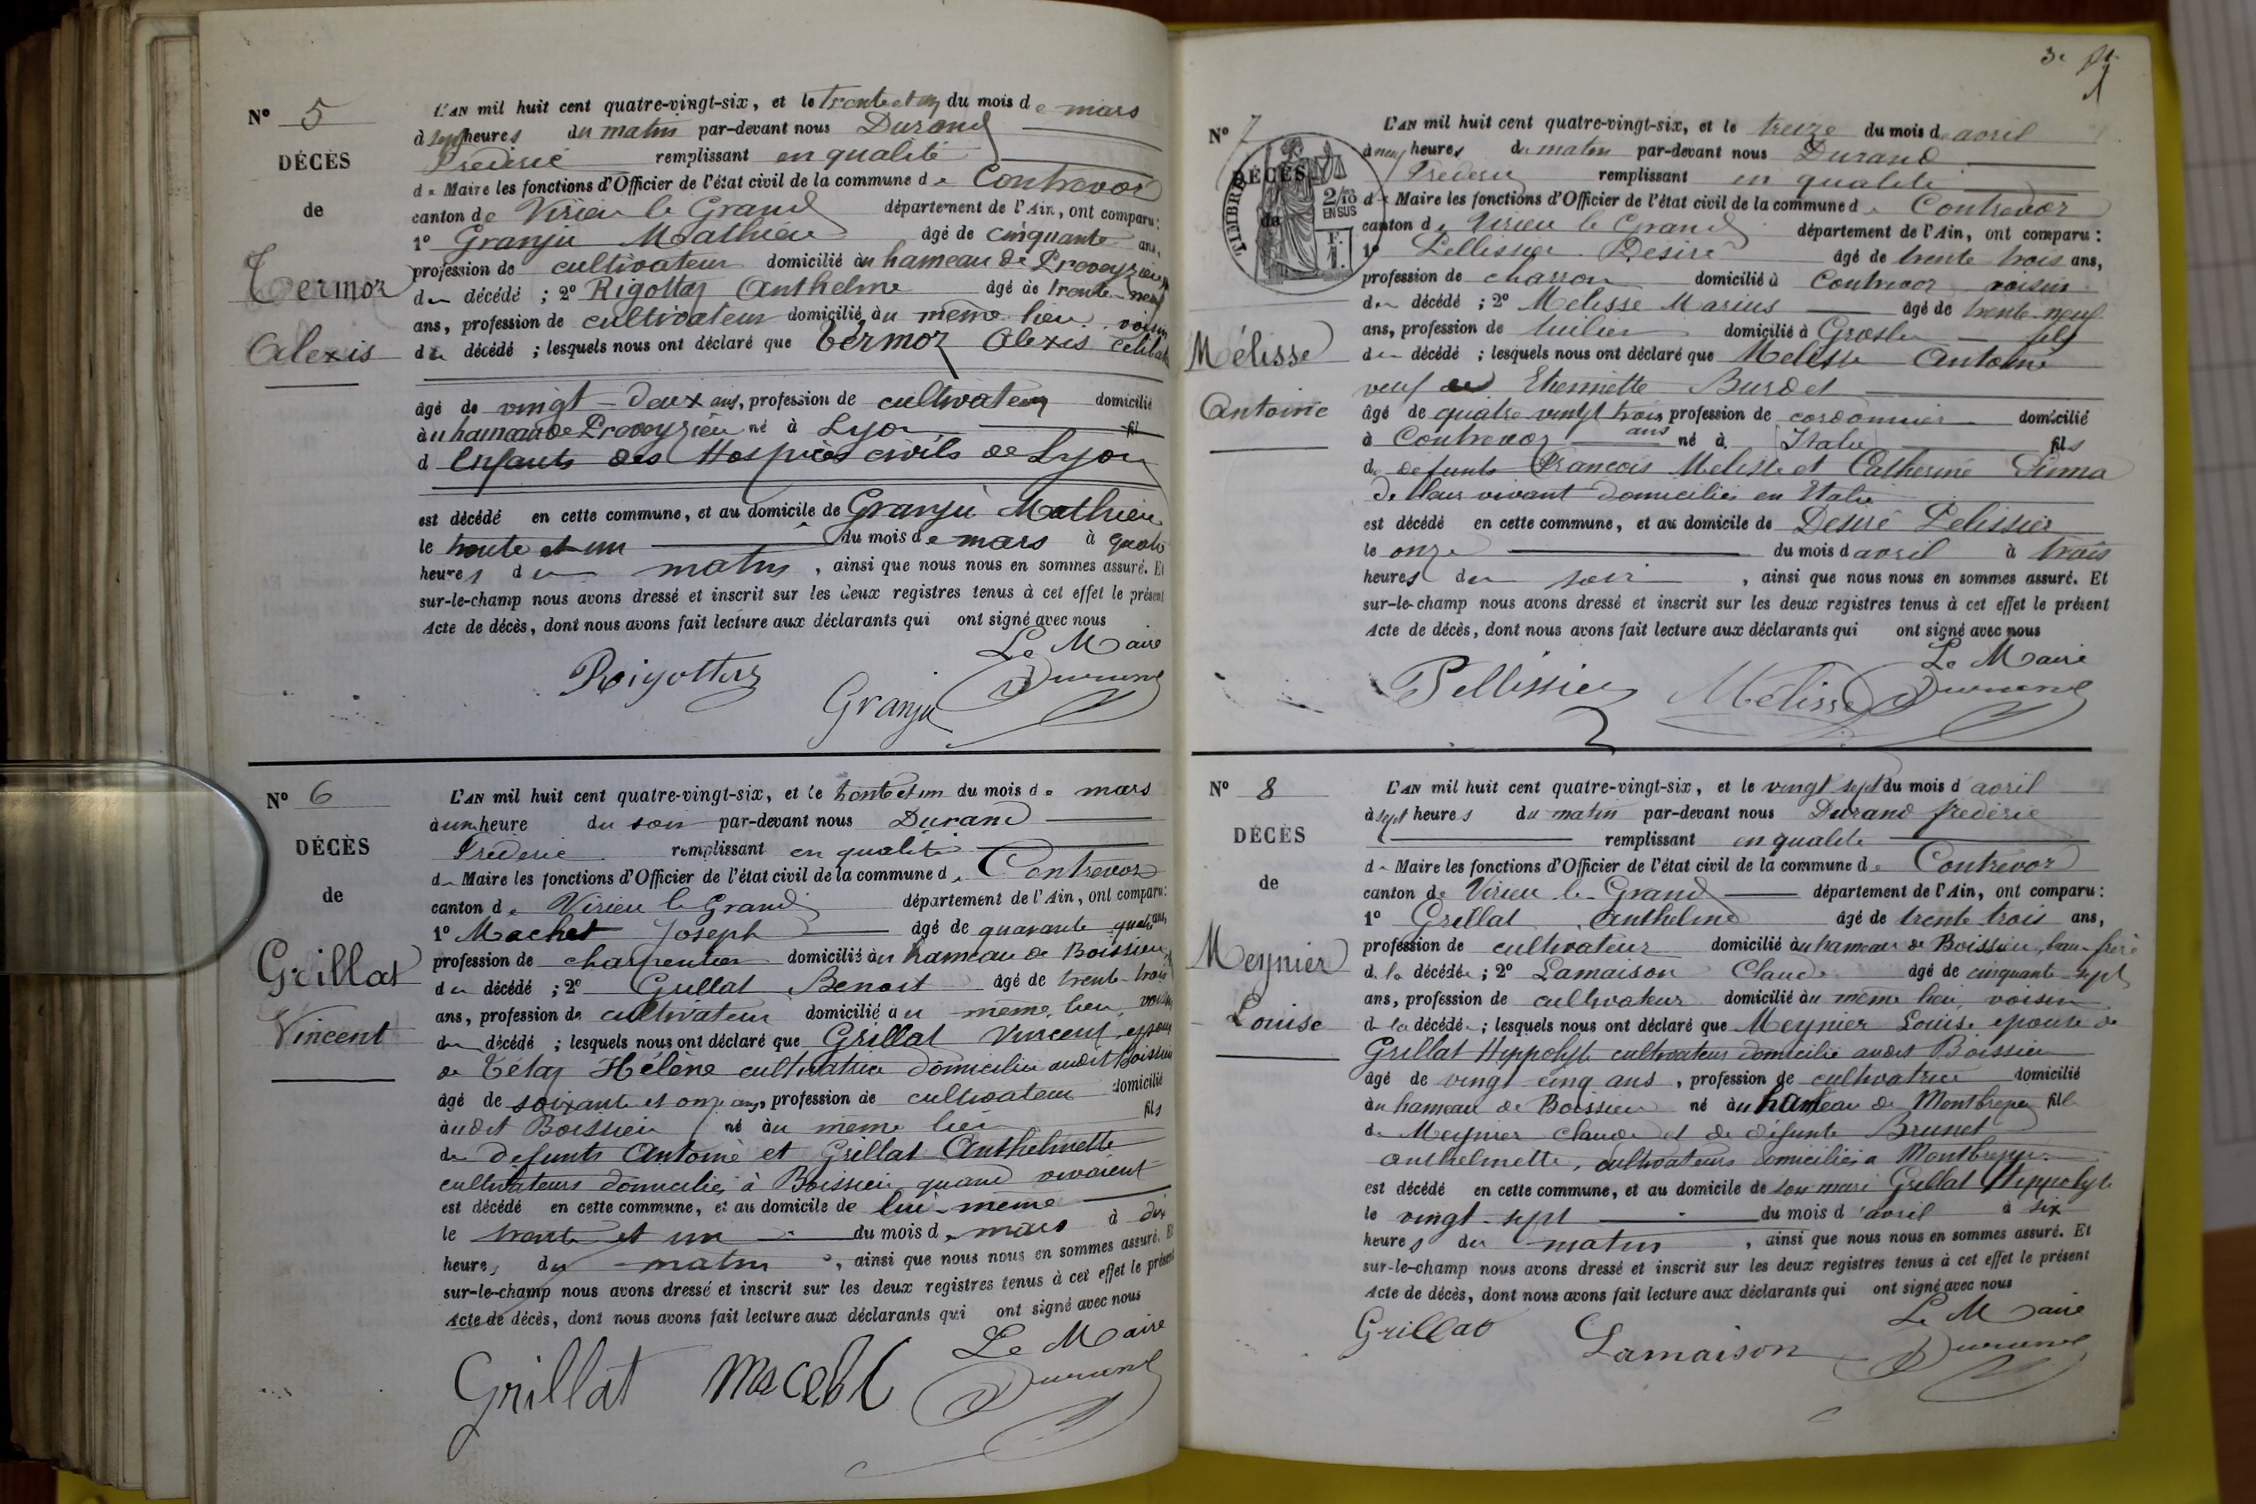 Nº 5
DÉCÈS
de
Termoz
Alexis
L'AN mil huit cent quatre-vingt-six, et le trente et un du mois de mars
à sept heures du matin par-devant nous Durand
Frédéric remplissant en qualité
de Maire les fonctions d'Officier de l'état civil de la commune de Contrevoz
canton de Virieu le Grand département de l'Ain, ont comparu :
1º Granju Mathieu âgé de cinquante ans,
profession de cultivateur domicilié au hameau de Preveyzieu
du décédé ; 2º Rigottaz Anthelme âgé de trente-neuf
ans, profession de cultivateur domicilié au même lieu voisin
du décédé ; lesquels nous ont déclaré que Termoz Alexis célibat
âgé de vingt-deux ans, profession de cultivateur domicilié
au hameau de Preveyzieu né à Lyon fil
d Enfants des Hospices civils de Lyon
est décédé en cette commune, et au domicile de Granju Mathieu
le trente et un du mois de mars à quatre
heures du matin, ainsi que nous nous en sommes assuré. Et
sur-le-champ nous avons dressé et inscrit sur les deux registres tenus à cet effet le présent
Acte de décès, dont nous avons fait lecture aux déclarants qui ont signé avec nous
Le Maire
Rigottaz Granju Durand
Nº 6
DÉCÈS
de
Grillat
Vincent
L'AN mil huit cent quatre-vingt-six, et le trente et un du mois de mars
à une heure du soir par-devant nous Durand
Frédéric remplissant en qualité
de Maire les fonctions d'Officier de l'état civil de la commune de Contrevoz
canton de Virieu le Grand département de l'Ain, ont comparu :
1º Machet Joseph âgé de quarante quatre ans,
profession de charpentier domicilié au hameau de Boissieu,
du décédé ; 2º Grillat Benoit âgé de trente-trois
ans, profession de cultivateur domicilié au même lieu, voisin
du décédé ; lesquels nous ont déclaré que Grillat Vincent, époux
de Tétaz Hélène cultivatrice domiciliée audit Boissieu
âgé de soixante et onze ans, profession de cultivateur domicilié
audit Boissieu né au même lieu fils
de defunts Antoine et Grillat Anthelmette
cultivateurs domiciliés à Boissieu quand vivaient
est décédé en cette commune, et au domicile de lui-même
le trente et un du mois de mars à dix
heures du matin, ainsi que nous nous en sommes assuré. Et
sur-le-champ nous avons dressé et inscrit sur les deux registres tenus à cet effet le présent
Acte de décès, dont nous avons fait lecture aux déclarants qui ont signé avec nous
Le Maire
Grillat Durand
Nº 7
DÉCÈS
de
TIMBRE
2/10
EN SUS
Mélisse
Antoine
L'AN mil huit cent quatre-vingt-six, et le treize du mois d avril
à neuf heures du matin par-devant nous Durand
Frederic remplissant en qualité
de Maire les fonctions d'Officier de l'état civil de la commune de Contrevoz
canton de Virieu le Grand département de l'Ain, ont comparu :
1º Pellissier Désiré âgé de trente trois ans,
profession de charron domicilié à Contrevoz voisin
du décédé ; 2º Melisse Marius âgé de trente-neuf
ans, profession de tuilier domicilié à Groslee fils
du décédé ; lesquels nous ont déclaré que Melisse Antoine
veuf de Etiennette Burdet
âgé de quatre-vingt trois ans profession de cordonnier domicilié
à Contrevoz né à Italie fils
de defunts François Melisse et Catherine
de leur vivant domiciliés en Italie
est décédé en cette commune, et au domicile de Désiré Pelissier
le onze du mois d avril à trois
heures du soir, ainsi que nous nous en sommes assuré. Et
sur-le-champ nous avons dressé et inscrit sur les deux registres tenus à cet effet le présent
Acte de décès, dont nous avons fait lecture aux déclarants qui ont signé avec nous
Le Maire
Pellissier Melisse Durand
Nº 8
DÉCÈS
de
Meynier
Louise
L'AN mil huit cent quatre-vingt-six, et le vingt sept du mois d avril
à sept heures du matin par-devant nous Durand frédéric
remplissant en qualite
de Maire les fonctions d'Officier de l'état civil de la commune de Contrevoz
canton de Virieu le Grand département de l'Ain, ont comparu :
1º Grillat Anthelme âgé de trente trois ans,
profession de cultivateur domicilié au hameau de Boissieu, beau frère
de la décédée ; 2º Lamaison Claude âgé de cinquante-sept
ans, profession de cultivateur domicilié au même lieu voisin
de la décédée ; lesquels nous ont déclaré que Meynier Louise epouse de
Grillat Hippolyte cultivateur domicilié audit Boissieu
âgé de vingt cinq ans, profession de cultivatrice domicilié
au hameau de Boissieu né au hameau de Montbreyzieu fille
de Meynier Claude et de défunte Brunet
Anthelmette, cultivateurs domiciliés à
est décédé en cette commune, et au domicile de son mari Grillat Hippolyte
le vingt-sept du mois d avril à six
heures du matin, ainsi que nous nous en sommes assuré. Et
sur-le-champ nous avons dressé et inscrit sur les deux registres tenus à cet effet le présent
Acte de décès, dont nous avons fait lecture aux déclarants qui ont signé avec nous
Le Maire
Grillat Lamaison Durand